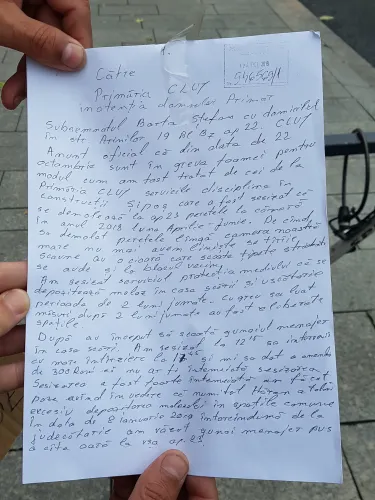 Către
Primăria CLUJ
în atenția domnului Primar
Subsemnatul Barta Ștefan cu domiciliul
în str Arinilor 19 Bl B2 ap 22 CLUJ
Anunț oficial că din data de 22
octombrie sunt în greva foamei pentru
modul cum am fost tratat de cei de la
Primăria CLUJ serviciile disciplina în
construcții Sipos care a fost sesizat că
se demolează la ap 23 peretele la cămară
în anul 2018 luna Aprilie - Iunie. De cînd
sa demolat peretele lîngă camera noastră
mare nu mai avem liniște se tîrîie
scaune au o cioară care scoate țipete stridente
se aude și la blocul vecin.
Am sesizat serviciul protecția mediului că se
depozitează moloz în casa scării și uscătorie
perioada de 2 luni jumate - cu greu sa luat
măsuri după 2 luni jumate au fost eliberate
spațiile.
După au început să scoată gunoiul menajer
în casa scării. Am sesizat la 12 15 sa intervenit
cu mare întîrziere la 17 45 și mi sa dat o amendă
de 300 Roni că nu ar fi întemeiată sesizarea
Sesizarea a fost foarte întemeiată am făcut
poze avînd în vedere ce numitul Huran a tolerat
excesiv depozitarea molozului în spațiile comune
în data de 8 ianuarie 2019 întorcîndumă de la
judecătorie am văzut gunoi menajer pus
a cîta oară la ușa ap. 23.